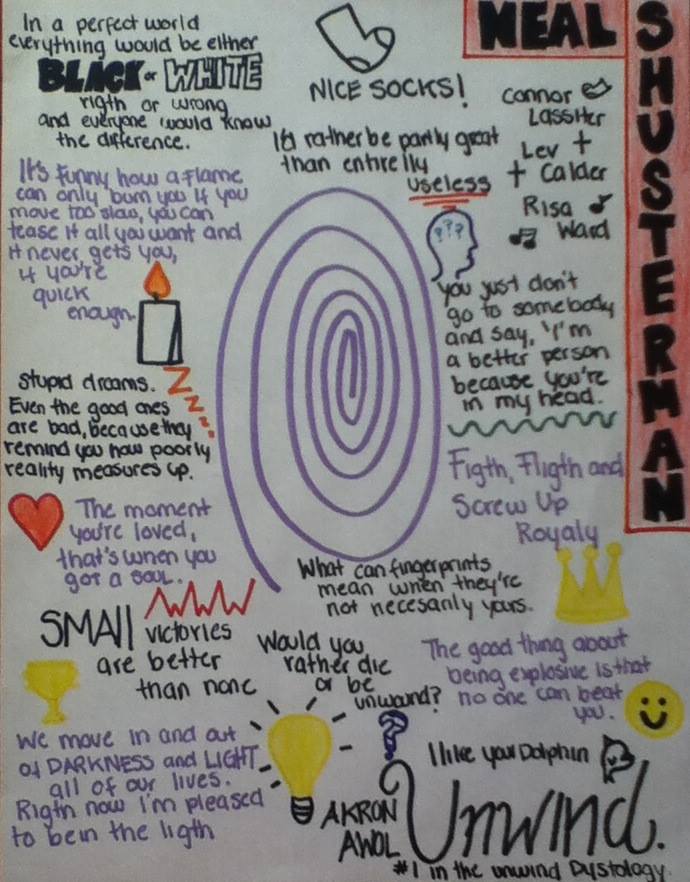 NEAL
SHUSTERMAN
In a perfect world
everything would be either
BLACK or WHITE
rigth or wrong
and everyone would know
the difference.
NICE SOCKS!
I'd rather be partly great
than entirelly
useless
Connor
Lassiter
Lev +
+ Calder
Risa
Ward
It's funny how a flame
can only burn you if you
move too slow, you can
tease it all you want and
it never gets you,
if you're
quick
enough.
???
you just don't
go to somebody
and say, "I'm
a better person
because you're
in my head.
Stupid dreams.
Even the good ones
are bad, because they
remind you how poorly
reality measures up.
Z
z
z
Figth, Fligth and
Screw Up
Royaly
The moment
you're loved,
that's when you
got a soul.
What can fingerprints
mean when they're
not necesarily yours.
SMAll victories
are better
than none
Would you
rather die
or be
unwound?
The good thing about
being explosive is that
no one can beat
you.
We move in and out
of DARKNESS and LIGHT
all of our lives.
Rigth now I'm pleased
to be in the ligth
I like your Dolphin
AKRON
AWOL
Unwind.
#1 in the unwind Dystology.